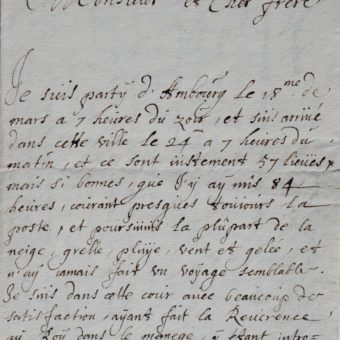 Monsieur et Cher frere
Je suis party d'Ambourg le 18.me de
mars a 7 heures du soir, et suis arrivé
dans cette ville le 24 a 7 heures du
matin, et ce sont iustement 57 lieües,
mais si bonnes, que J'y ay mis 84
heures, courant presques tousiours la
poste, et poursuivis la plûpart de la
neige, grelle, pluye, vent et gelée, et
n'ay jamais fait vn voyage semblable.
Je suis dans cette cour avec beaucoup de
satisfaction, ayant fait la Reverence
au Roy dans le manege, y étant intro-